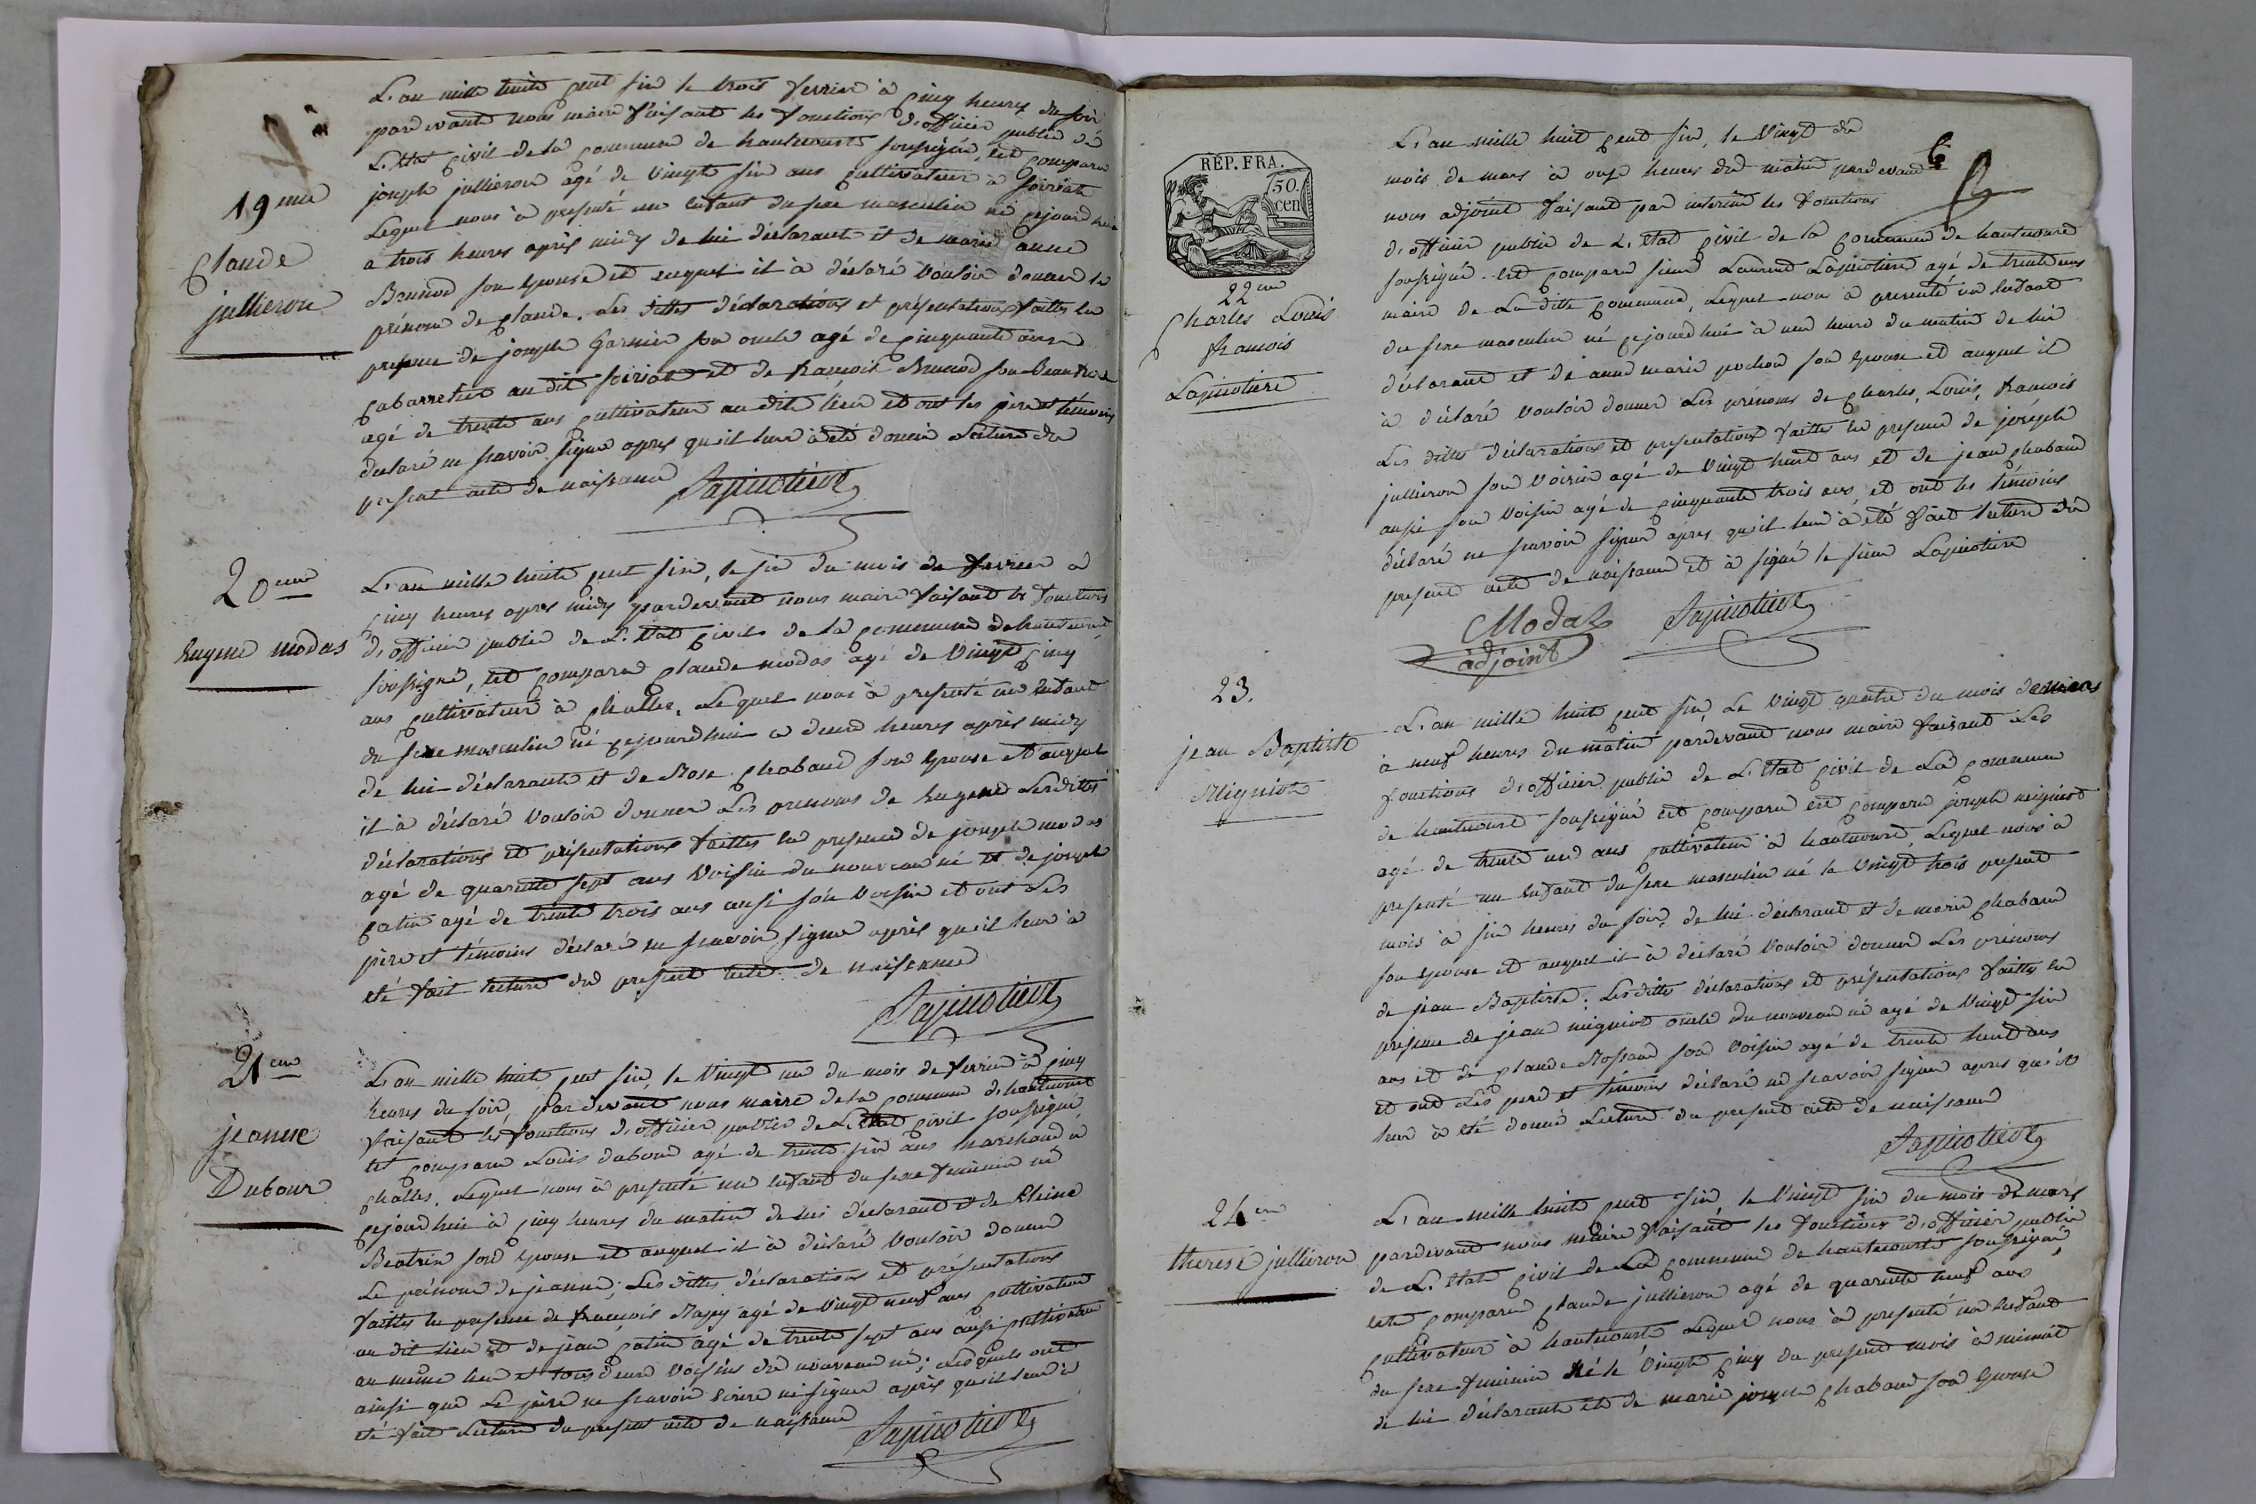 L'an mille huit cent six le trois fevrier à cinq heures du soir
pardevant nous maire faisant les fonctions d'officier public de
L'Etat civil de la commune de hautecourt soussigné, est comparu
19eme
joseph jullieron agé de vingt six ans cultivateur à soiriat
Lequel nous à presenté un enfant du sexe masculin né cejourdhui
Claude
a trois heures après midy de lui déclarant et de marie anne
jullieron
Brunod son Epouse et auquel il à déclaré vouloir donner le
prénom de Claude. Les dittes déclarations et présentations faittes en
presence de joseph Garnier son oncle agé de cinquante ans
cabarretier au dit soiriat et de francois Brunod son Beau frere
agé de trente ans cultivateur au dit lieu et ont les pere et témoins
declaré ne scavoir signer apres qu'il leur à été donné Lecture du
present acte de naissance
Lapinotiere
20eme
L'an mille huit cent six, le six du mois de fevrier à
cinq heures apres midy pardevant nous maire faisant les fonctions
Eugene modas
d'officier public de L'Etat civil de la commune de hautecourt
soussigné, est comparu Claude modas agé de vingt cinq
ans cultivateur à challes, Lequel nous à presenté un Enfant
du sexe masculin né cejourdhui a deux heures après midy
de lui déclarant et de Rose Chabaud son Epouse et auquel
il à déclaré vouloir donner Les prenoms de Eugene Lesdittes
déclarations et présentations faittes en presence de joseph modas
agé de quarante sept ans voisin du nouveau né et de joseph
catin agé de trente trois ans aussi son voisin et ont Les
pere et témoins déclaré ne scavoir signer après qu'il leur à
été fait lecture du present acte de naissance
Lapinotiere
21eme
L'an mille huit cent six, le vingt un du mois de fevrier à cinq
heures du soir, pardevant nous maire de la commune de hautecourt
jeanne
faisant les fonctions d'officier public de L'Etat civil soussigné
Dubour
est comparu Louis dubour agé de trente six ans marchand à
challes. Lequel nous à presenté un enfant du sexe feminin né
cejourdhui à cinq heures du matin de lui déclarant et de
Beatrix son Epouse et auquel il à déclaré vouloir donner
Le prénom de jeanne; Les dittes déclarations et présentations
faittes en presence de francois agé de vingt neuf ans cultivateur
au dit lieu et de jean catin agé de trente sept ans aussi cultivateur
au même lieu et tous deux voisins du nouveau né; Lesquels ont
ainsi que Le père ne scavoir Ecrire ni signer après qu'il leur à
été fait Lecture du present acte de naissance
Lapinotiere
6
REP. FRA.
50.
cen
L'an mille huit cent six, le vingt du
mois de mars à onze heures du matin pardevant
nous adjoint faisant par interim les fonctions
d'officier public de L'Etat civil de la commune de hautecourt
22eme
soussigné est comparu sieur Laurent Lapinotiere agé de trente ans
Charles Louis
maire de La ditte commune, Lequel nous à presenté un Enfant
francois
du sexe masculin né cejourdhui à une heure du matin de lui
Lapinotiere
déclarant et de anne marie pochon son Epouse et auquel il
à déclaré vouloir donner Les prénoms de Charles, Louis, francois
Les dittes déclarations et presentations faittes en presence de joseph
jullieron son voisin agé de vingt huit ans et de jean chabaud
aussi son voisin agé de cinquante trois ans, et ont les témoins
déclaré ne scavoir signer après qu'il leur à été fait lecture du
present acte de naissance et à signé le sieur Lapinotiere
Modas
adjoint
Lapinotiere
23.
L'an mille huit cent six, Le vingt quatre du mois de mars
jean Baptiste
à neuf heures du matin pardevant nous maire faisant Les
Migniot
fonctions d'officier public de L'Etat civil de La commune
de hautecourt soussigné est comparu est comparu joseph mignot
agé de trente un ans cultivateur à hautecourt, Lequel nous à
presenté un Enfant du sexe masculin né le vingt trois present
mois à six heures du soir, de lui déclarant et de marie chabaud
son Epouse et auquel il à déclaré vouloir donner Les prénoms
de jean Baptiste. Lesdittes déclarations et présentations faittes en
presence de jean mignot oncle du nouveau né agé de vingt six
ans et de Claude Rossand son voisin agé de trente huit ans
et ont Les pere et témoins déclaré ne scavoir signer apres qu'il
leur à été donné Lecture du present acte de naissance
Lapinotiere
24eme
L'an mille huit cent six, le vingt six du mois de mars
therese jullieron
pardevant nous maire faisant les fonctions d'officier public
de L'Etat civil de La commune de hautecourt soussigné,
est comparu Claude jullieron agé de quarante neuf ans
cultivateur à hautecourt Lequel nous à presenté un Enfant
du sexe feminin né le vingt cinq du present mois à minuit
de lui déclarant et de marie josephe chabaud son Epouse